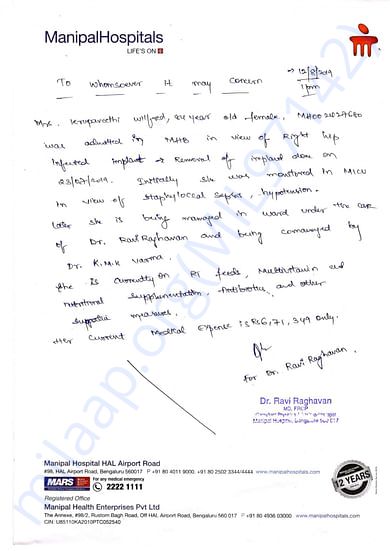 ManipalHospitals
LIFE'S ON
→ 12/8/2019
1pm
To Whomsoever It may Concern
Mrs. Krupavathi Wilfred, 84 year old female, MH002027680
was admitted in MHB in view of Right hip
infected implant → Removal of implant done on
23/07/2019. Initially she was monitored in MICU
in view of staphylococcal sepsis, hypotension.
Later she is being managed in ward under the care
of Dr. Ravi Raghavan and being comanaged by
Dr. K.M.K Varma.
She is currently on RT feeds, Multivitamin and
nutritional supplementation. Antibiotics and other
supportive measures.
Her current medical Expense is Rs6,71,349 only.
For Dr. Ravi Raghavan.
Dr. Ravi Raghavan
MD, FRCP
Manipal Hospital, Bangalore 560 017
milaap.org
Manipal Hospital HAL Airport Road
#98, HAL Airport Road, Bengaluru 560017 P +91 80 4011 9000, +91 80 2502 3344/4444 www.manipalhospitals.com
MARS For any medical emergency
2222 1111
12 YEARS
Registered Office
Manipal Health Enterprises Pvt Ltd
The Annexe, #98/2, Rustom Bagh Road, Off HAL Airport Road, Bengaluru 560 017 P +91 80 4936 03000 www.manipalhospitals.com
CIN: U85110KA2010PTC052540